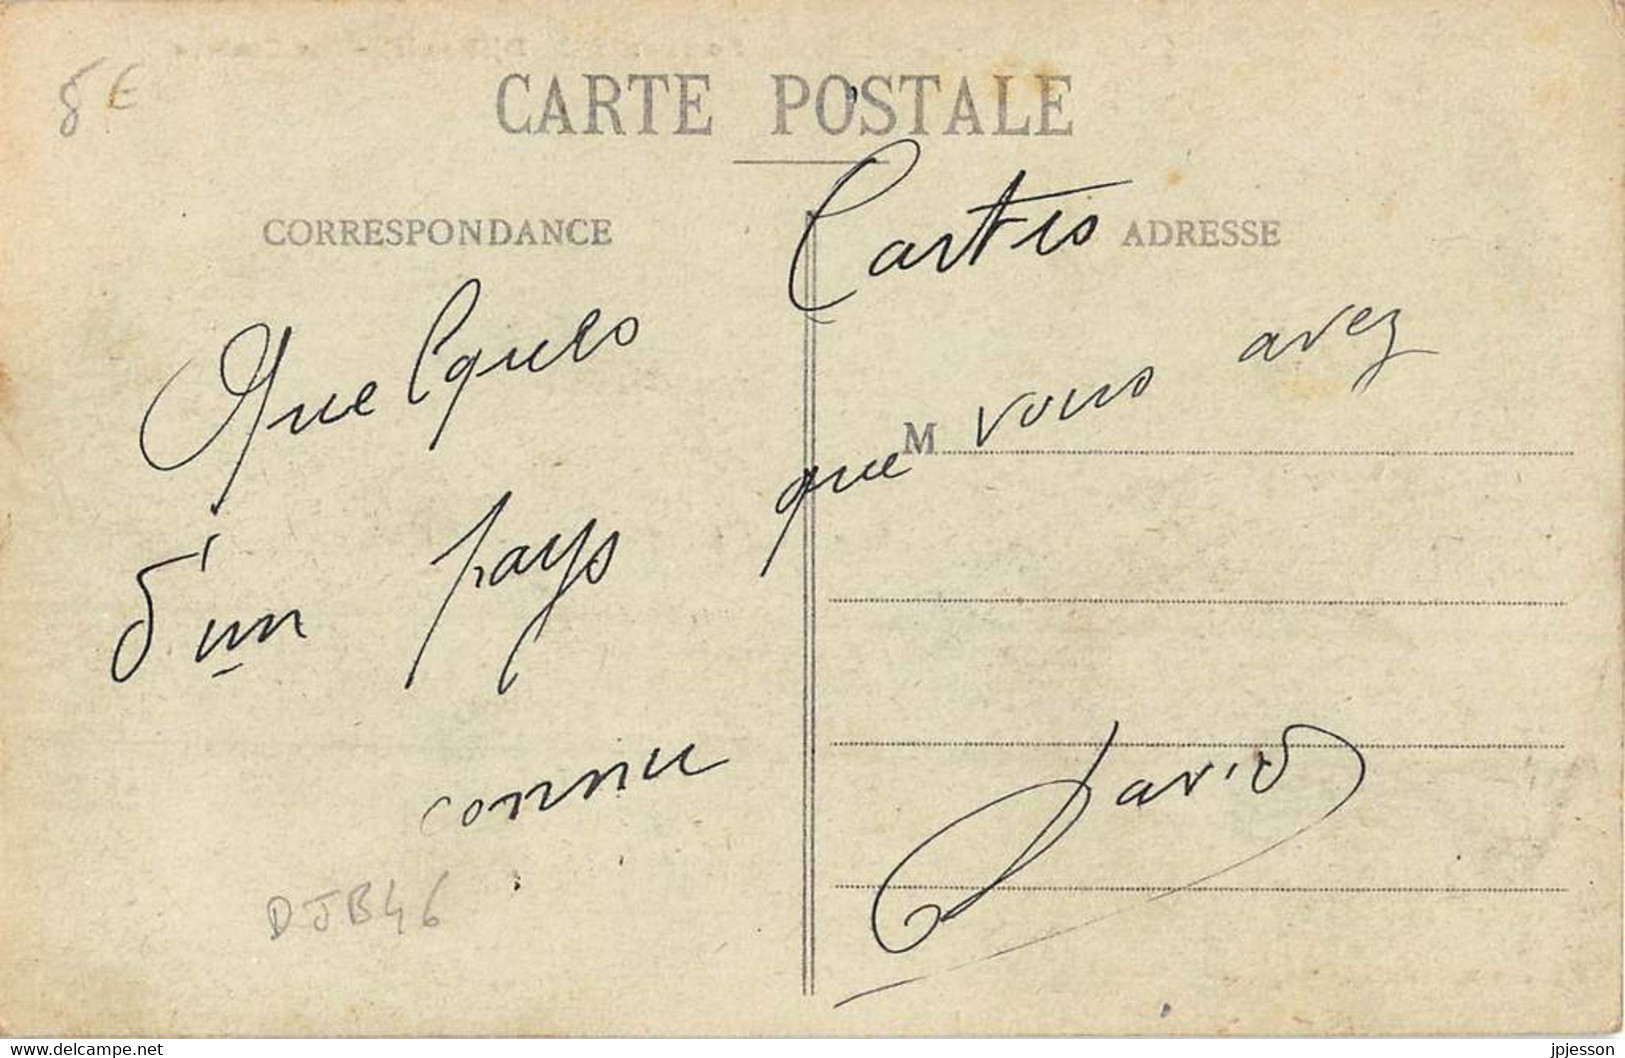 8 €
CARTE POSTALE
CORRESPONDANCE
ADRESSE
Quelques Cartes
d'un pays que vous avez
connu
M
David
DJB46
www.delcampe.net
jpjesson